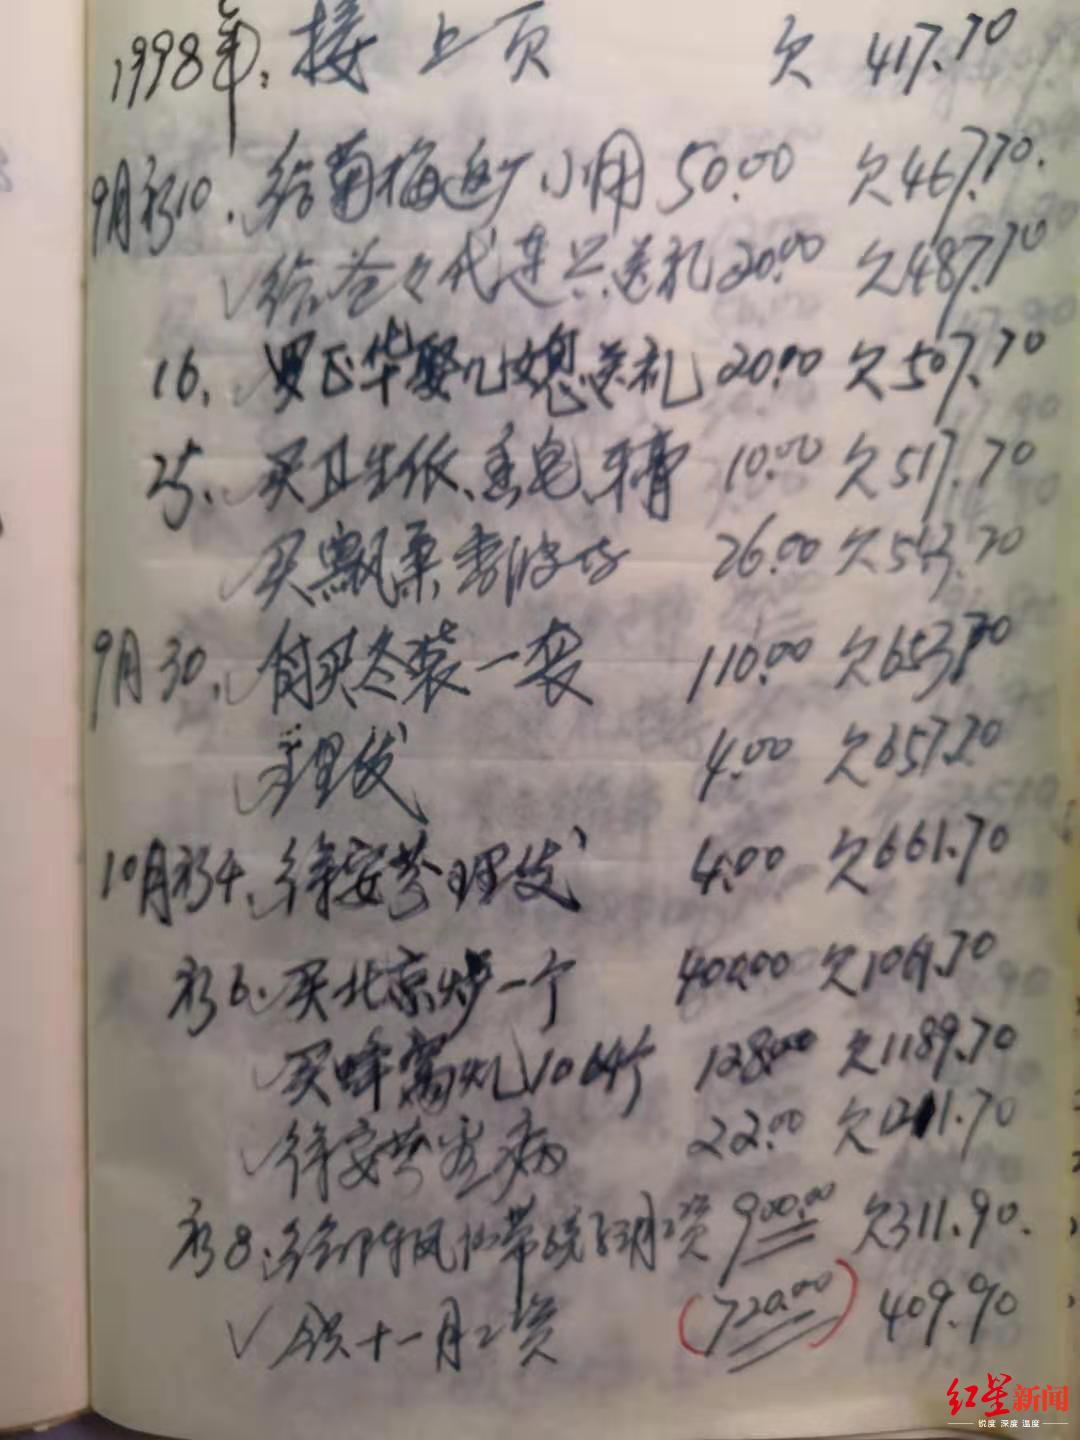 1998年: 接上页 欠 417.70
9月初10. 给菊梅 小用 50.00 欠467.70.
√给爷々代连兴送礼 20.00 欠487.70
16. 罗正华娶儿媳送礼 20.00 欠507.70
25. √买卫生纸、香皂、牙膏 10.00 欠517.70
√买飘柔 26.00 欠543.70
9月30. √付买冬装一套 110.00 欠653.70
√理发 4.00 欠657.70
10月初4. √徐安芬理发 4.00 欠661.70
初6. √买北京炉一个 400.00 欠1061.70
√买蜂窝煤1064个 128.00 欠1189.70
√徐安芬看病 22.00 欠1211.70
初8. √给 月工资 900.00 欠311.90.
√领十一月工资 (720.00) 409.90
红星新闻
锐度 深度 温度